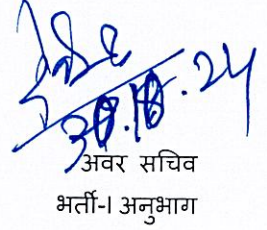 30.10.24
अवर सचिव
भर्ती-I अनुभाग